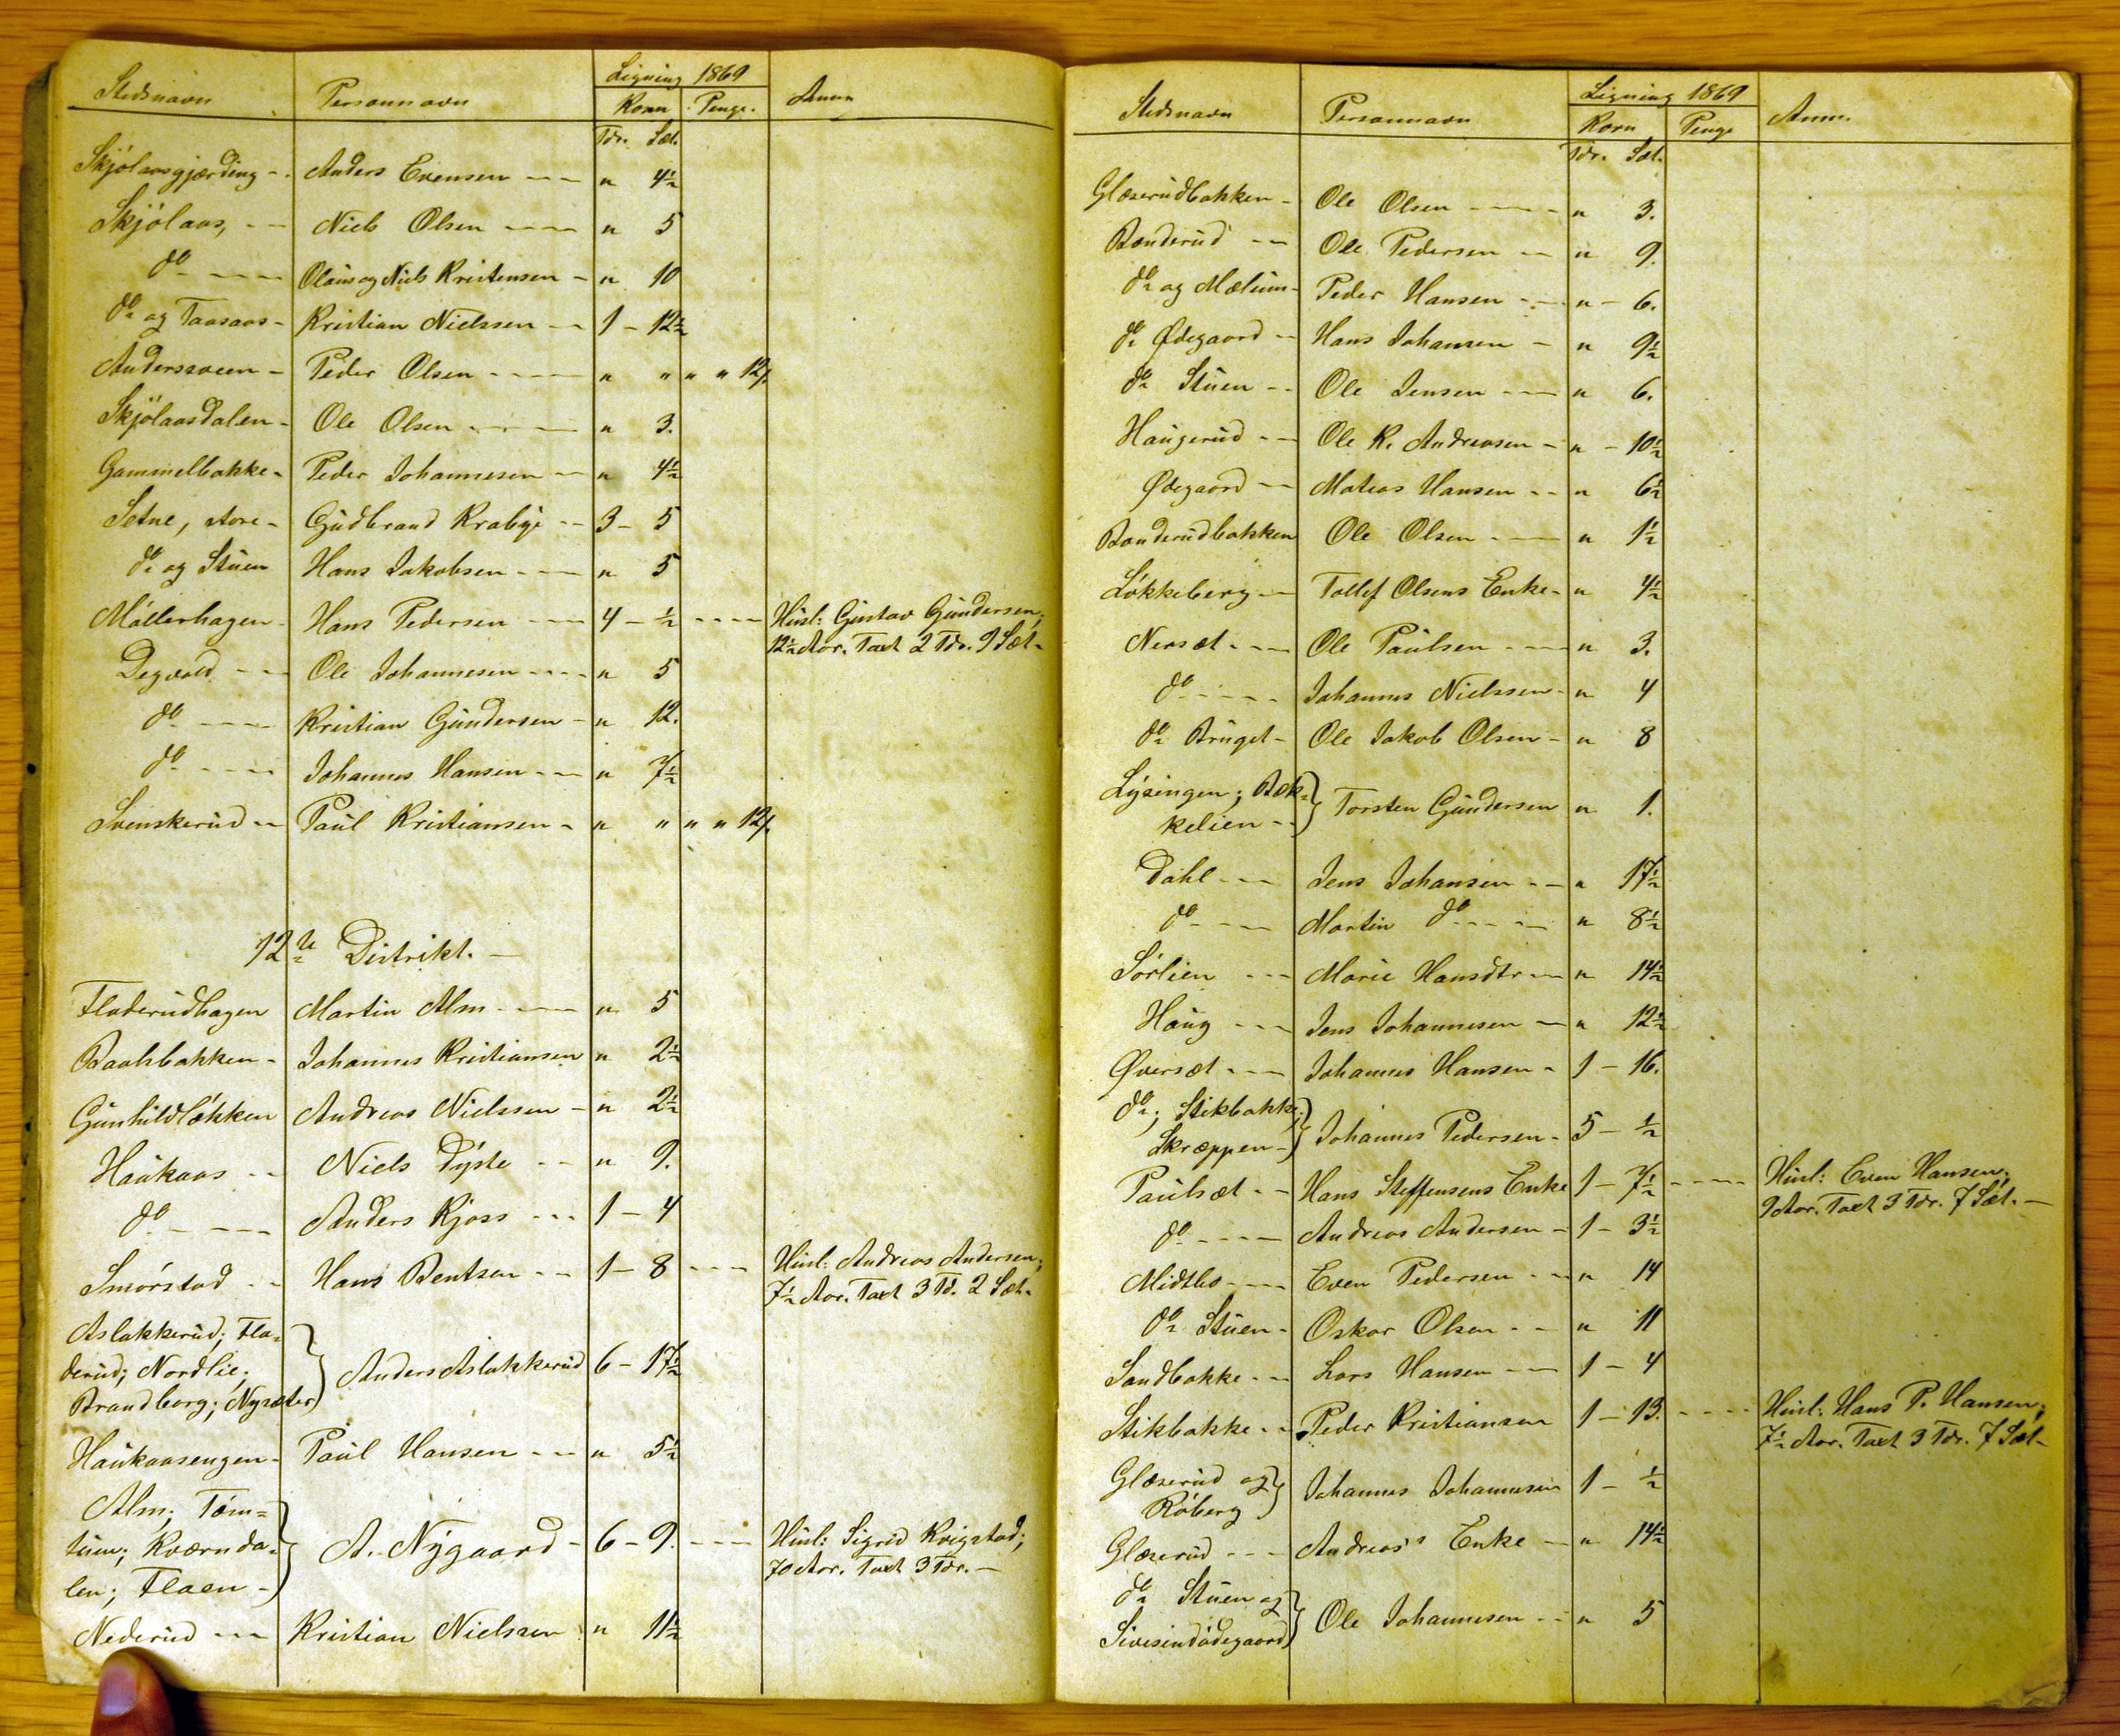 Stedsnavn Personnavn Ligning 1869 Anm
Korn Penge.
Tdr. Sæt.
Skjölaasgjærding - Anders Evensen - - - " 4½
Skjölaas, - - Niels Olsen - - - " 5
do - - - Olaus og Niels Kristensen - " 10
do og Taasaas - Kristian Nielssen - - 1 - 12½
Andersveen - Peder Olsen - - - " " " " 12/.
Skjölaasdalen - Ole Olsen - - - " 3.
Gammelbakke - Peder Johannesen - " 4½
Setne, store - Gudbrand Krabye - - 3 - 5
do og Stuen Hans Jakobsen - - - " 5
Möllerhagen - Hans Pedersen - - - 4 - ½ - - - - Husl: Gustav Gundersen;
12½ Aar. Taxt 2 Tdr. 9 Sæt -
Degvold - - Ole Johannesen - - - " 5
do - - - Kristian Gundersen - " 12.
do - - - Johannes Hansen - - - " 7½
Svenskerud - - Paul Kristiansen - " " " " 12/.
12te Distrikt. -
Fladerudhagen Martin Alm - - - " 5
Baahsbakken - Johannes Kristiansen " 2½
Gunhildlökken Andreas Nielssen - " 2½
Haukaas - - Niels Dyste - - " 9.
do - - - Anders Kjoss - - - 1 - 4
Smörstad - - Hans Bentsen - - 1 - 8 - - - Husl: Andreas Andersen;
7½ Aar. Taxt 3 Td. 2 Sæt -
Aslakkerud; Fla-
derud; Nordlie;
Brandborg; Nysæter} Anders Aslakkerud 6 - 17½
Haukaasengen - Paul Hansen - - - " 5½
Alm; Töm-
tum; Kværnda-
len; Flaen -} A. Nygaard - 6 - 9. - - - Husl: Sigrid Kvigstad;
70 Aar. Taxt 3 Tdr. -
Nederud - - - Kristian Nielssen " 11½
Stedsnavn Personnavn Ligning 1869 Anm.
Korn Penge
Tdr. Sæt.
Glæserudbakken - Ole Olsen - - - " 3.
Bænderud - - Ole Pedersen - - " 9.
do og Mælum - Peder Hansen - - " - 6.
do Ødegaard - - Hans Johansen - " 9½
do Stuen - - Ole Jensen - - - " 6.
Haugerud - - Ole K. Andreasen - " - 10½
Ødegaard - - Mateas Hansen - - " 6½
Bænderudbakken Ole Olsen - - - " 1½
Lökkeberg - - Tollef Olsens Enke - " 4½
Nersæt - - - Ole Paulsen - - - " 3.
do - - - - Johannes Nielssen - " 4
do Bruget - Ole Jakob Olsen - " 8
Lysingen; Bæk-
kelien - -} Torsten Gundersen " 1.
Dahl - - - Jens Johansen - - " 17½
do - - - Martin do - - - " 8½
Sörlien - - - Marie Hansdtr - - " 14½
Haug - - - Jens Johannesen - " 12½
Øversæt - - - Johannes Hansen - 1 - 16.
do; Stikbakke;
Skræppen -} Johannes Pedersen - 5 - ½
Paulsæt - - Hans Steffensens Enke 1 - 7½ - - - - Husl: Even Hansen;
9 Aar. Taxt 3 Tdr. 7 Sæt. -
do - - - Andreas Andersen - 1 - 3½
Midtbo - - - Even Pedersen - - - " 14
do Stuen - Oskar Olsen - - " 11
Sandbakke - - - Lars Hansen - - - 1 - 4
Stikbakke - - Peder Kristiansen 1 - 13. - - - - Husl: Hans P. Hansen;
7½ Aar. Taxt 3 Tdr. 7 Sæt -
Glæserud og
Röberg} Johannes Johannesen 1 - ½
Glæserud - - - Andreas's Enke - " 14½
do Stuen og
Sivesindödegaard} Ole Johannesen - - " 5